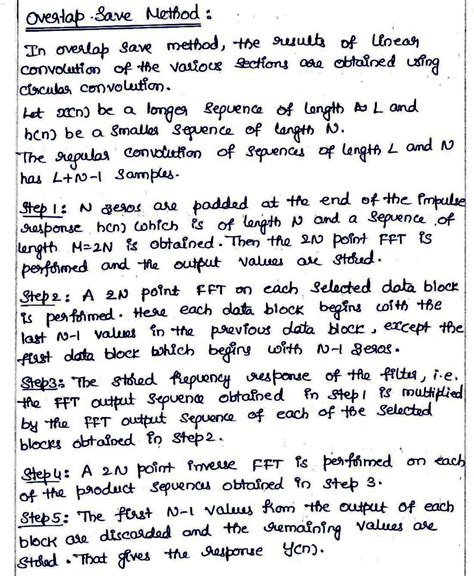 Overlap-Save Method :
In overlap save method, the results of linear
convolution of the various sections are obtained using
circular convolution.
Let x(n) be a longer sequence of length L and
h(n) be a smaller sequence of length N.
The regular convolution of sequences of length L and N
has L+N-1 samples.
Step 1: N zeros are padded at the end of the impulse
response h(n) which is of length N and a sequence of
length M=2N is obtained. Then the 2N point FFT is
performed and the output values are stored.
Step 2: A 2N point FFT on each selected data block
is performed. Here each data block begins with the
last N-1 values in the previous data block, except the
first data block which begins with N-1 zeros.
Step 3: The stored frequency response of the filter, i.e.
the FFT output sequence obtained in step 1 is multiplied
by the FFT output sequence of each of the selected
blocks obtained in step 2.
Step 4: A 2N point inverse FFT is performed on each
of the product sequences obtained in step 3.
Step 5: The first N-1 values from the output of each
block are discarded and the remaining values are
stored. That gives the response y(n).